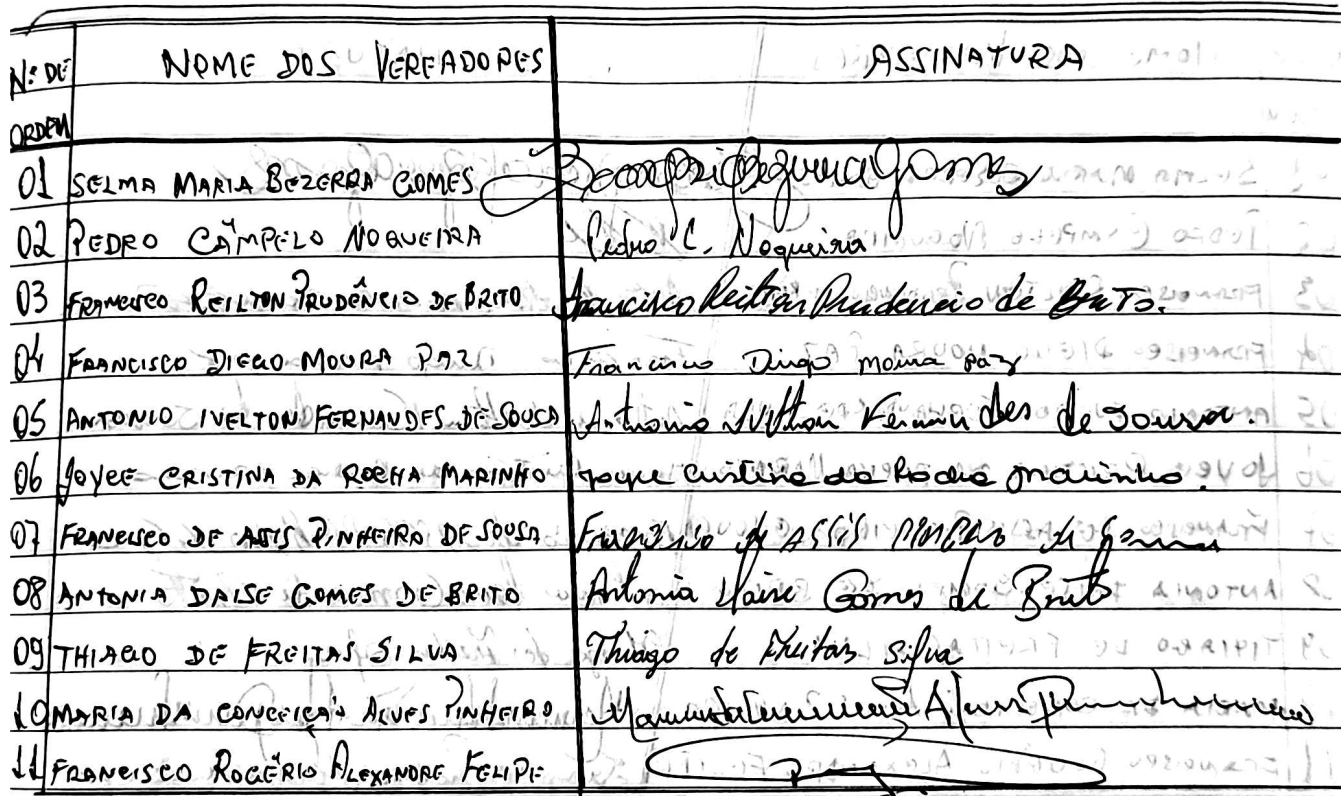 Nº DE NOME DOS VEREADORES ASSINATURA
ORDEM
01 SELMA MARIA BEZERRA GOMES Gomes
02 PEDRO CAMPELO NOGUEIRA Pedro C. Nogueira
03 FRANCISCO REILTON PRUDÊNCIO DE BRITO Francisco Reilton Prudencio de Brito.
04 FRANCISCO DIEGO MOURA PAZ Francisco Diego moura paz
05 ANTONIO IVELTON FERNANDES DE SOUSA Antonio Fernandes de Sousa.
06 JOYCE CRISTINA DA ROCHA MARINHO Joyce Cristina da Rocha Marinho.
07 FRANCISCO DE ASSIS PINHEIRO DE SOUSA Francisco de ASSIS
08 ANTONIA DAISE GOMES DE BRITO Antonia Daise Gomes de Brito
09 THIAGO DE FREITAS SILVA Thiago de Freitas Silva
10 MARIA DA CONCEIÇÃO ALVES PINHEIRO Alves
11 FRANCISCO ROGÉRIO ALEXANDRE FELIPE